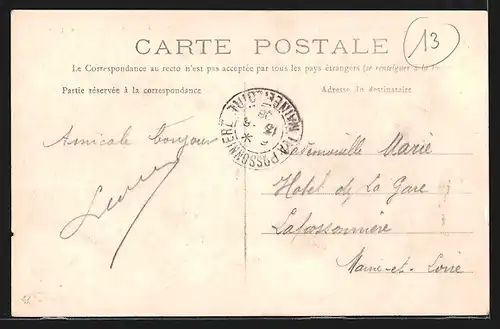 CARTE POSTALE
13
Le Correspondance au recto n'est pas acceptée par tous les pays étrangers (se renseigner à la
Partie réservée à la correspondance
Adresse du destinataire
LA POSSONNIERE
MAINE-ET-LOIRE
Amicale bonjour
Mademoiselle Marie
Hotel de La Gare
Lapossonnière
Maine-et-Loire